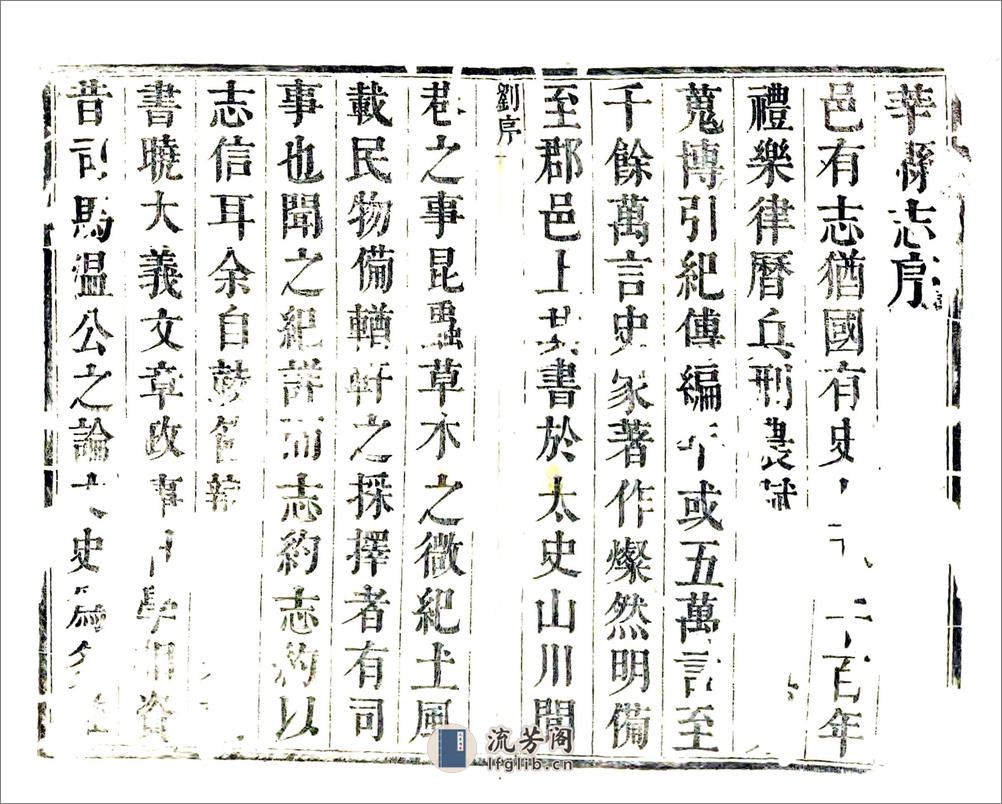 莘縣志序
邑有志猶國有史 二百年
禮樂律曆兵刑農
蒐博引紀傳編年或五萬言至
千餘萬言史家著作燦然明備
至郡邑上其書於太史山川閭
劉序
巷之事昆蟲草木之微紀土風
載民物備輶軒之採擇者有司
事也聞之紀詳而志約志約以
志信耳余自
書曉大義文章政事 學相資
昔司馬温公之論 史
流芳阁
lfglib.cn